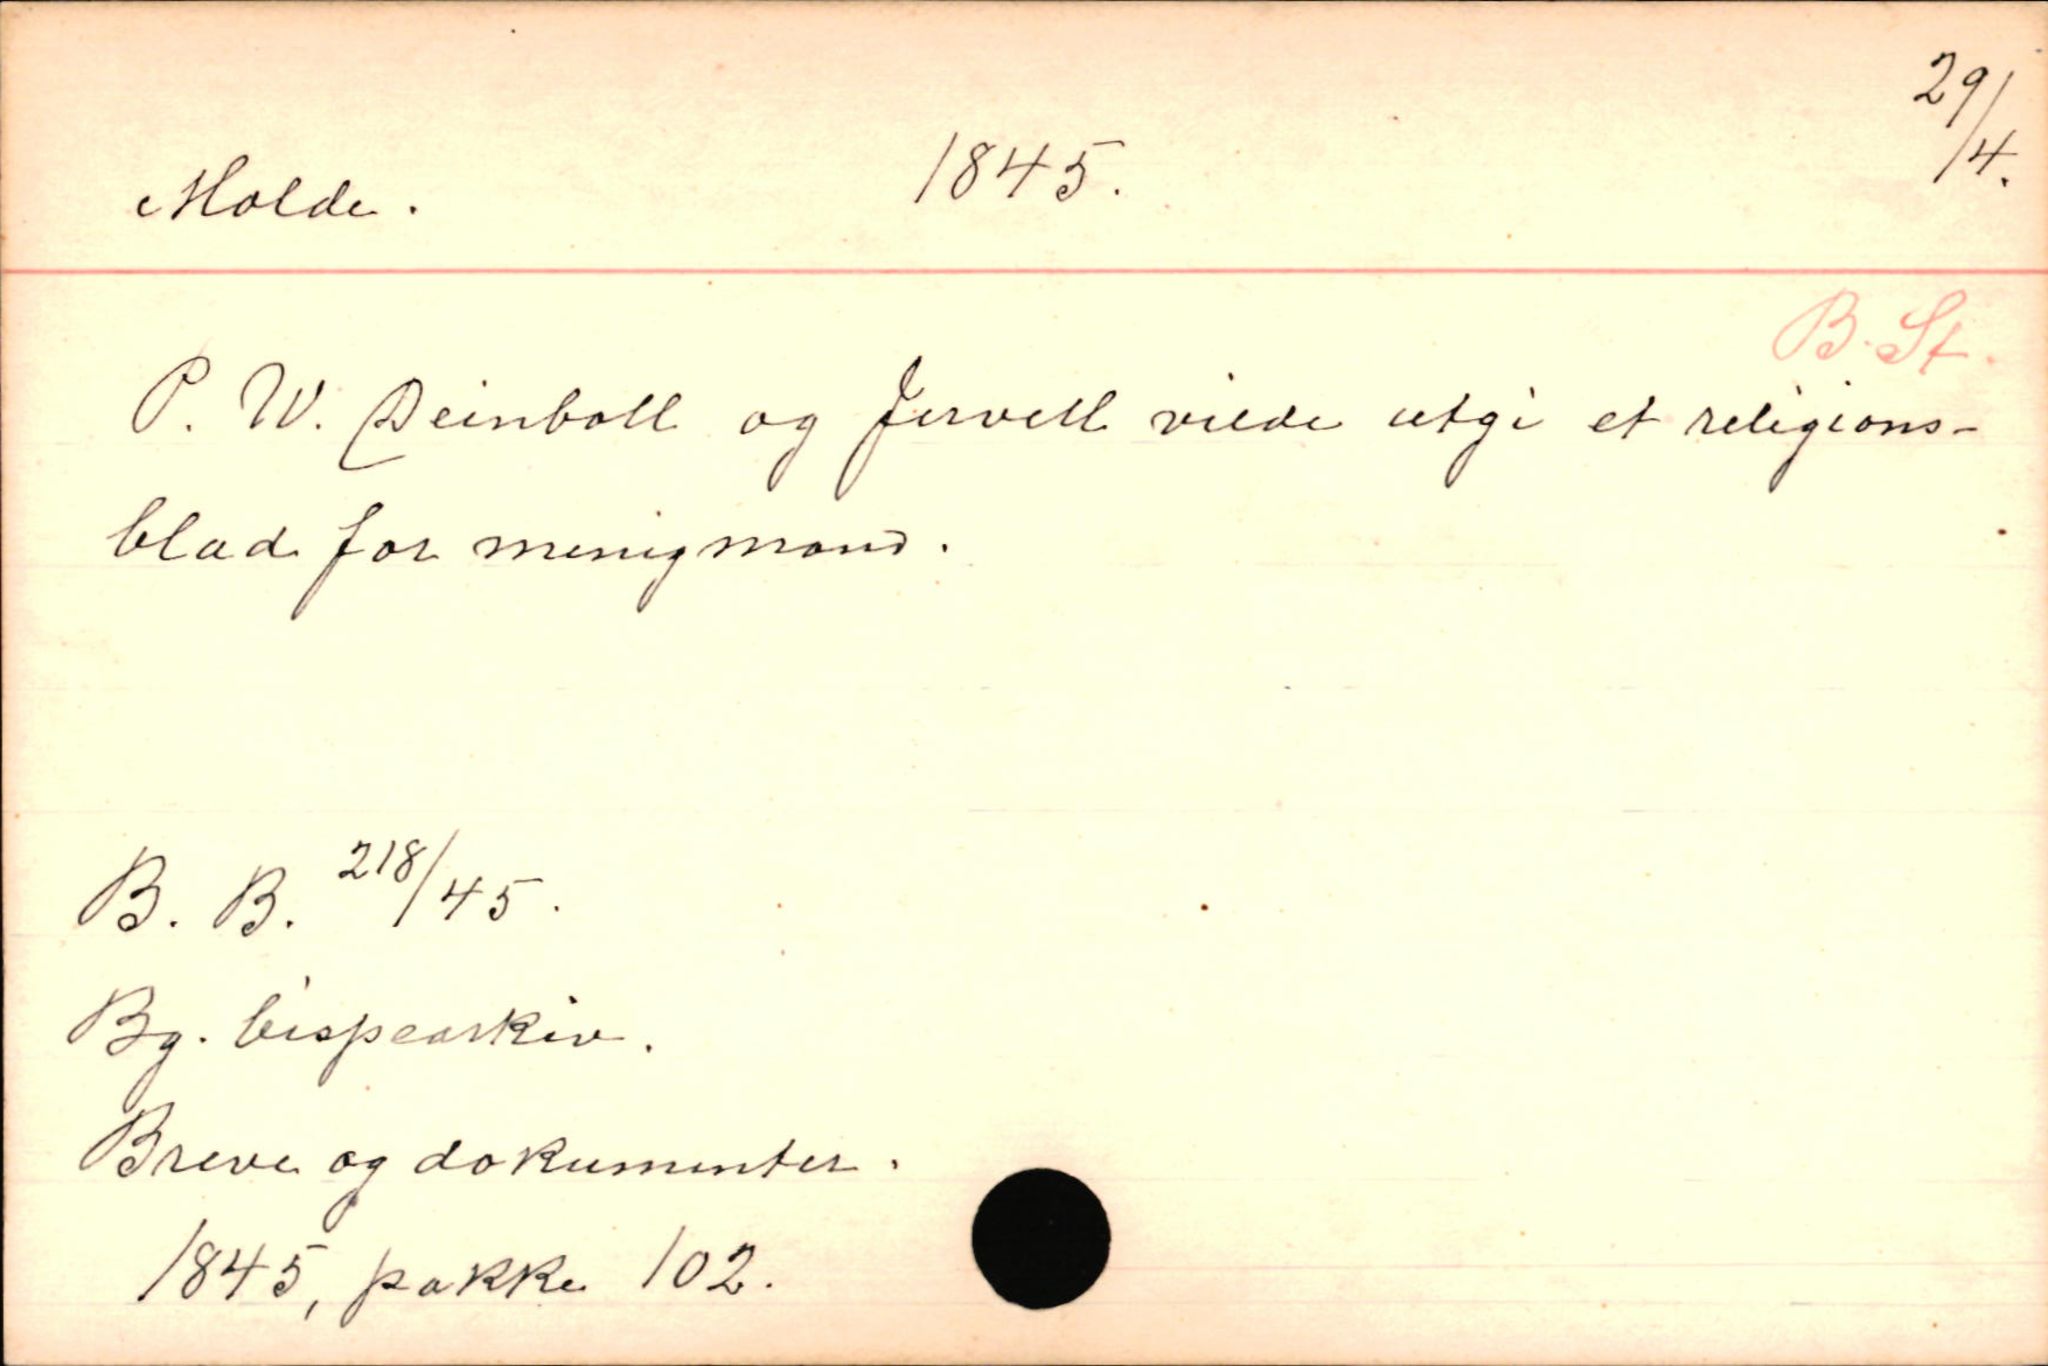 Molde. 1845. 29/4.
B. St.
P. W. Deinboll og Jervell vilde utgi et religions-
blad for menigmand.
B. B. 218/45.
Bg. bispearkiv.
Breve og dokumenter.
1845, pakke 102.